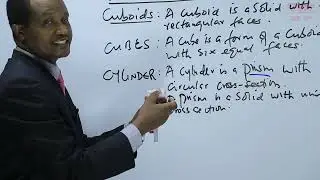 Cuboids: A cuboid is a solid with
rectangular faces.
CUBES: A Cube is a form of a Cuboid
with six equal faces.
CYLINDER: A Cylinder is a Prism with
circular cross-section.
Prism is a Solid with
cross section.